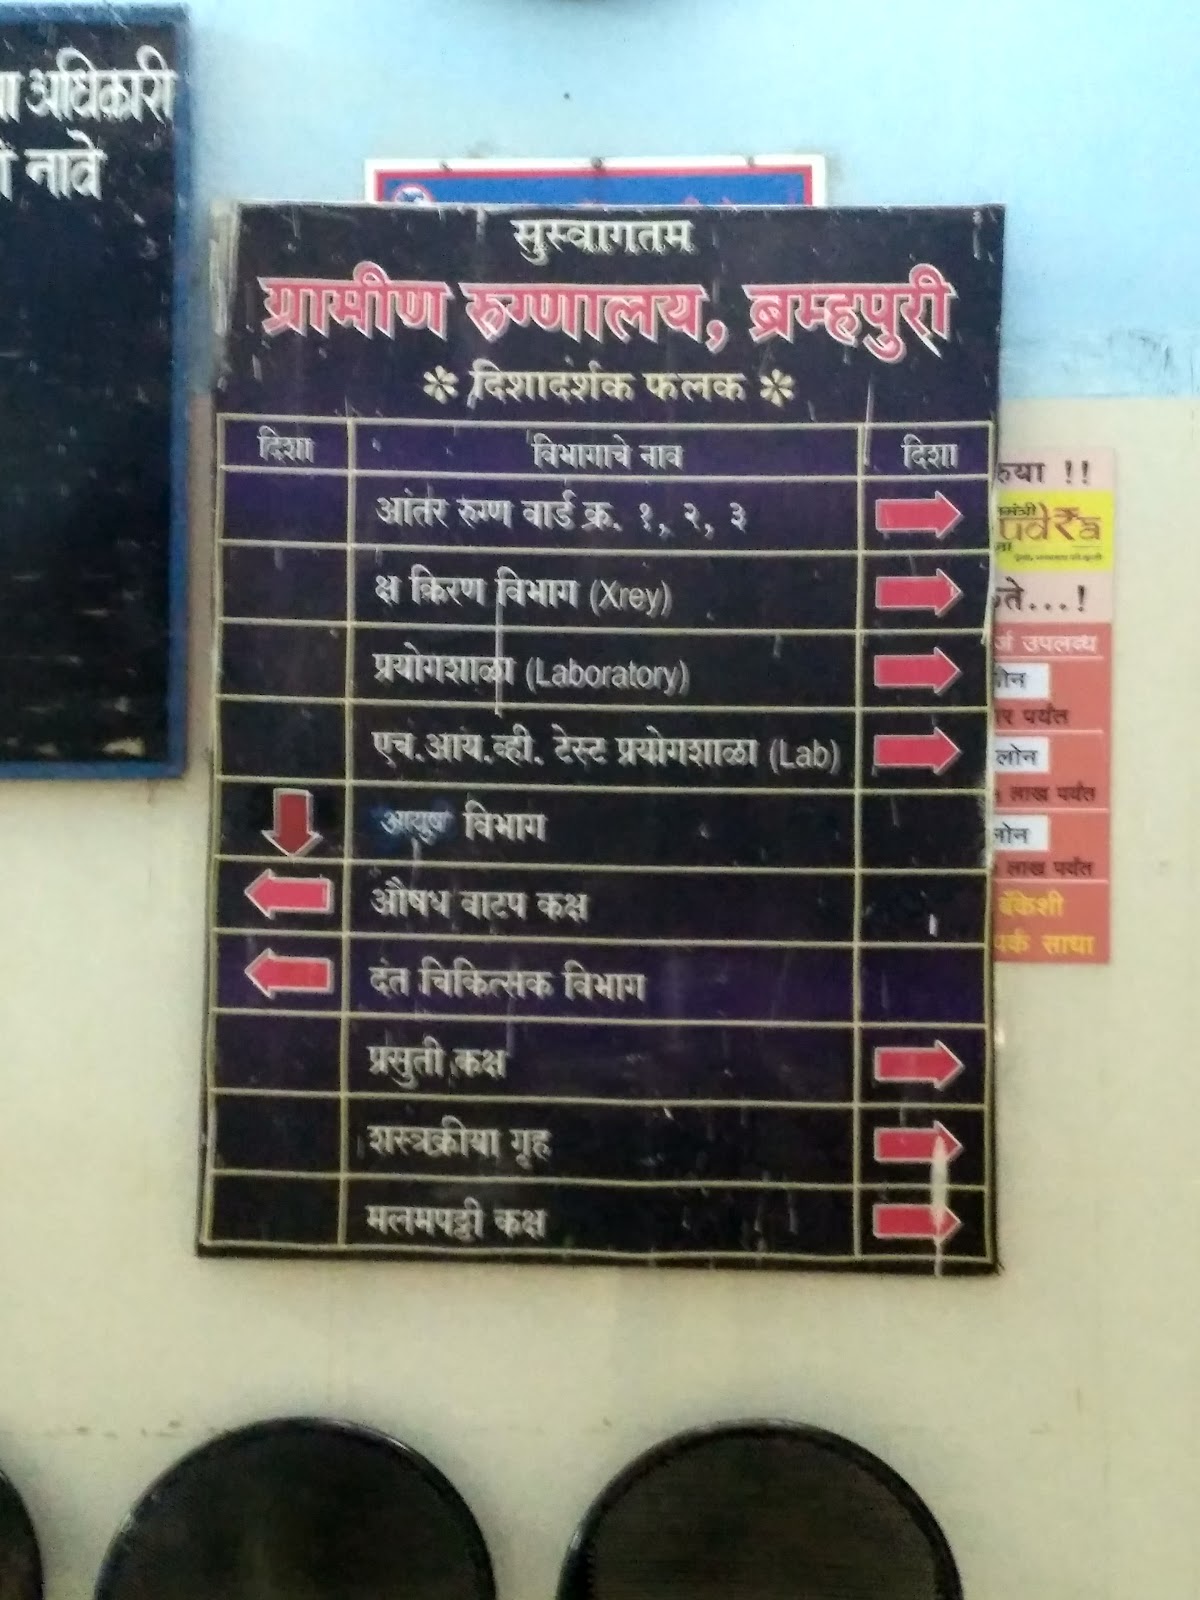 अधिकारी
नावे
सुस्वागतम
ग्रामीण रुग्णालय, ब्रम्हपुरी
* दिशादर्शक फलक *
दिशा विभागाचे नाव दिशा
आंतर रुग्ण वार्ड क्र. १, २, ३
क्ष किरण विभाग (Xrey)
प्रयोगशाळा (Laboratory)
एच.आय.व्ही. टेस्ट प्रयोगशाळा (Lab)
आयुष विभाग
औषध वाटप कक्ष
दंत चिकित्सक विभाग
प्रसुती कक्ष
शस्त्रक्रीया गृह
मलमपट्टी कक्ष
!!
उपलब्ध
पर्यंत
लोन
लाख पर्यंत
लाख पर्यंत
बँकेशी
साधा